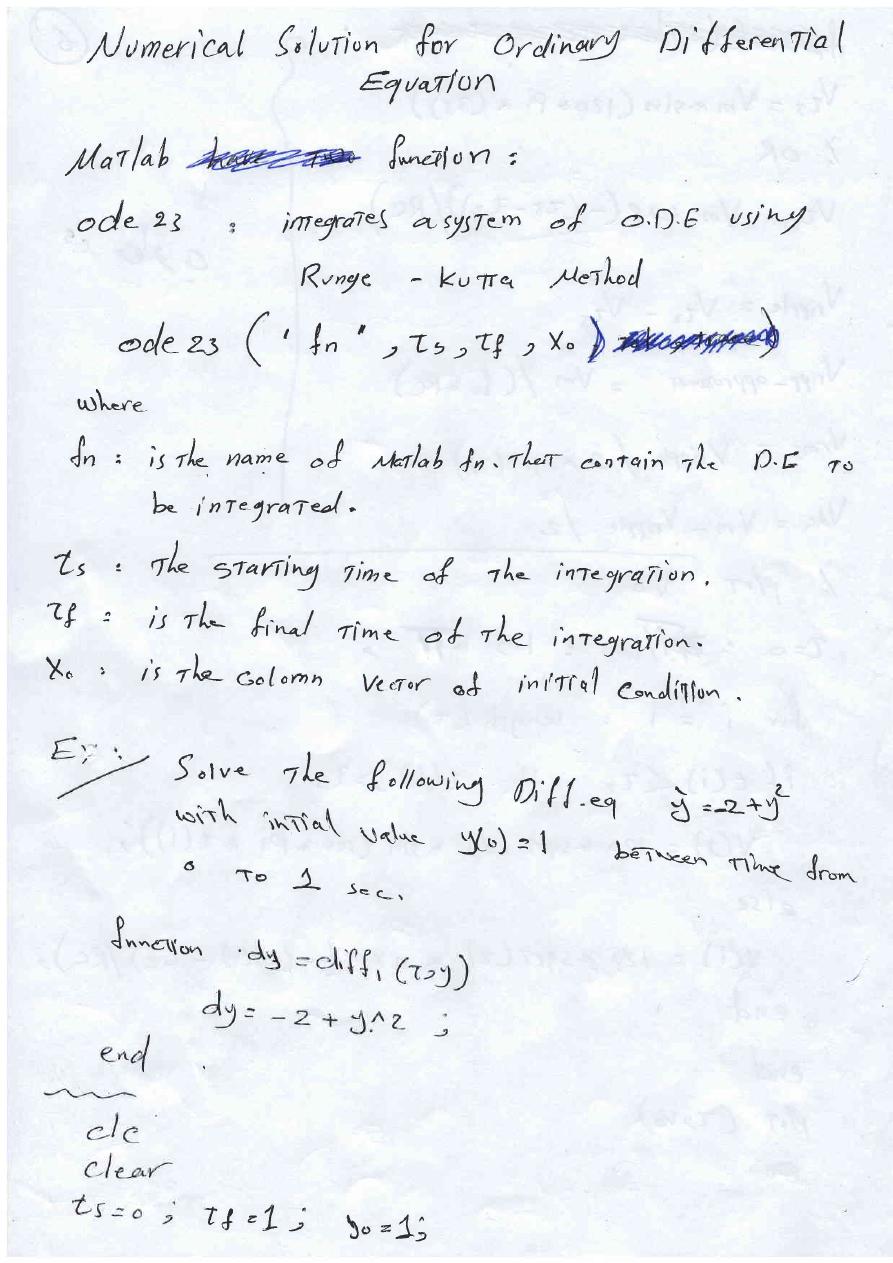 Numerical Solution for Ordinary Differential
Equation
Matlab function :
ode 23 : integrates a system of O.D.E using
Runge - Kutta Method
ode 23 ( ' fn " , ts , tf , X₀ )
where
fn : is the name of Matlab fn. that contain the D.E to
be integrated.
ts : the starting time of the integration.
tf : is the final time of the integration.
X₀ : is the Colomn Vector of initial Condition.
Ex:
Solve the following Diff.eq ẏ = -2 + y²
with intial value y(0) = 1 between time from
0 to 1 sec.
function dy = diff₁ (t,y)
dy = -2 + y.^2 ;
end
clc
clear
ts = 0 ; tf = 1 ; y₀ = 1;